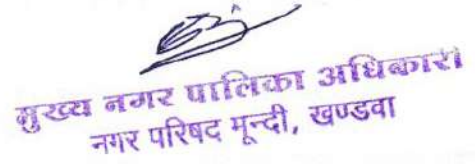 मुख्य नगर पालिका अधिकारी
नगर परिषद मून्दी, खण्डवा